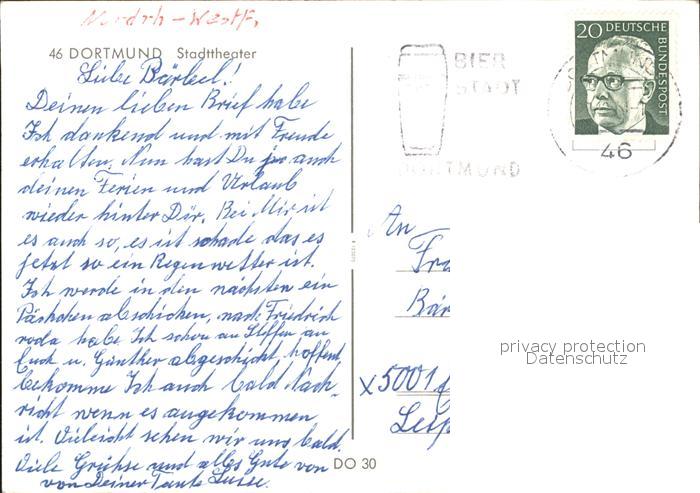 Nordrh-Westf.
46 DORTMUND Stadttheater
Liebe Bärbel!
Deinen lieben Brief habe
Ich dankend und mit Freude
erhalten. Nun hast Du ja auch
deinen Ferien und Urlaub
wieder hinter Dir. Bei Mir ist
es auch so, es ist schade das es
jetzt so ein Regenwetter ist.
Ich werde in den nächsten ein
Päckchen abschicken, nach Friedrich
roda habe Ich schon an Steffen an
Euch u. Günther abgeschickt, hoffent
bekomme Ich auch bald Nach-
richt wenn es angekommen
ist. Vieleicht sehen wir uns bald.
Viele Grühse und alles Gute von
von Deiner Tante
DO 30
BIER
STADT
DORTMUND
20 DEUTSCHE
BUNDESPOST
46
An
Fra
Bär
x 5001
privacy protection
Datenschutz